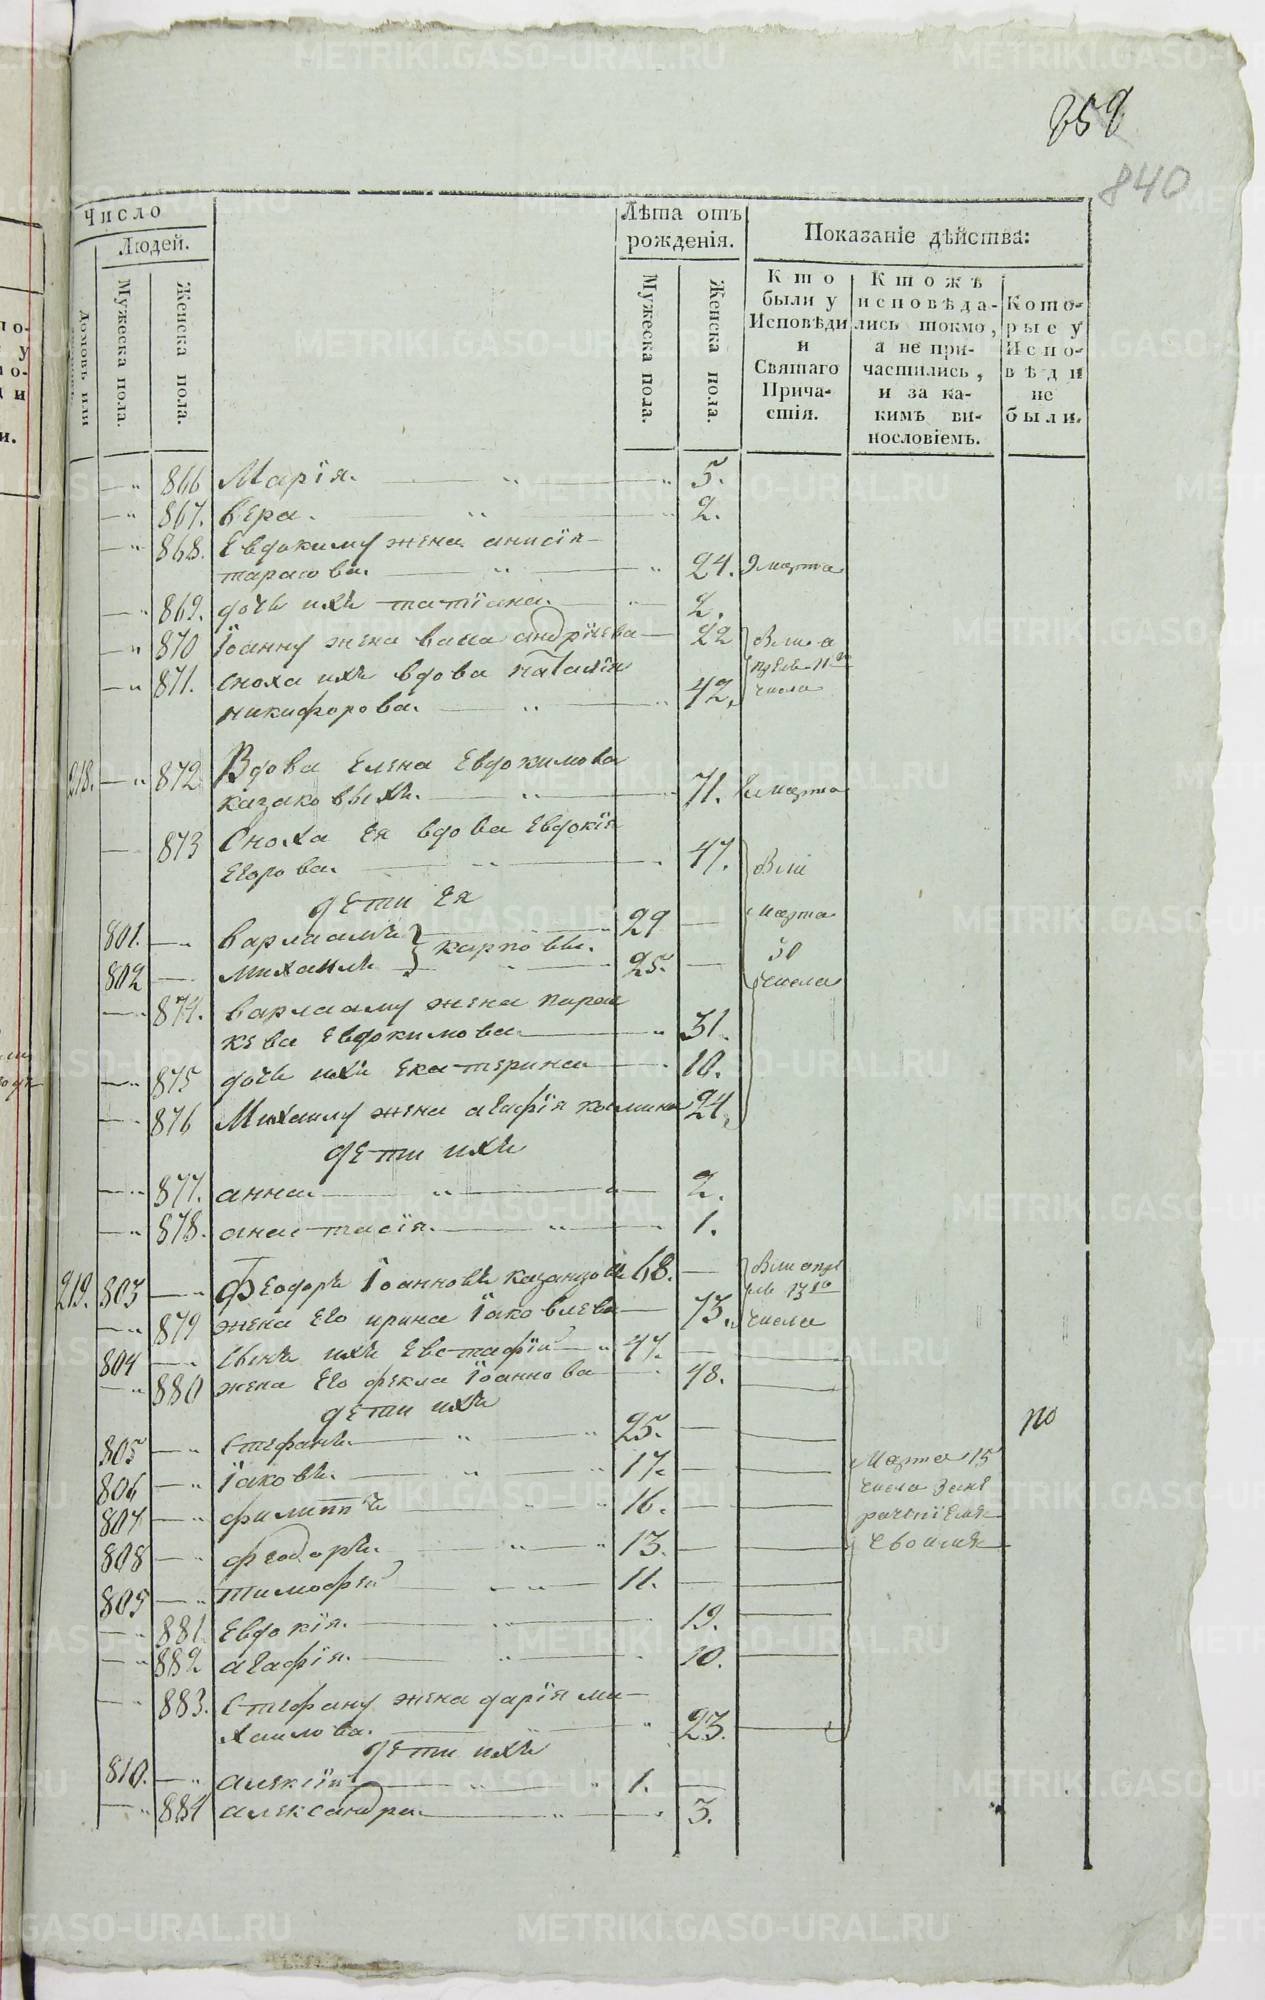 840
Число
Людей.
Домовъ или
Мужеска пола.
Женска пола.
Лѣта отъ
рожденія.
Мужеска пола.
Женска пола.
Показаніе дѣйства:
Кто
были у
Исповѣди
и
Святаго
Прича-
стія.
Ктожъ
исповѣда-
лись токмо,
а не при-
частились,
и за ка-
кимъ ви-
нословіемъ.
Кото-
рые у
Испо-
вѣди
не
были.
866 Марія. 5.
867. вера. 2.
868. Евдокиму жена анисія
тарасова. 24. 9 марта
869. дочь ихъ татіана. 2.
870 Іоанну жена васса андріева 22
871. сноха ихъ вдова наталія
никифорова. 42.
числа
218. 872. Вдова Елена Евдокимова
казаковыхъ. 71. марта
873 Сноха Ея вдова Евдокія
Егорова. 47.
дети Ея
марта
30
числа
801. варлаамъ 29
карповы.
802 михаилъ 25.
874. варлааму жена парас
кева Евдокимова 31.
875 дочь ихъ Екатерина 10.
876 Михаилу жена агафія космина 24.
дети ихъ
877. анна. 2.
878. анастасія. 1.
219. 803 Феодоръ Іоанновъ казанцовъ 68.
числа
879 жена Его ирина Іаковлева 73.
804 Сынъ ихъ Евстафій 47.
880 жена Его фекла Іоаннова 48.
дети ихъ
805 Стефанъ. 25.
806 Іаковъ. 17.
807 филиппъ 16.
808 феодоръ. 13.
809 тимофей 11.
Марта 15
числа
881. Евдокія. 19.
882 агафія. 10.
883. Стефану жена дарія ми
хаилова. 23.
дети ихъ
810. алексій 1.
884 александра. 3.
METRIKI.GASO-URAL.RU